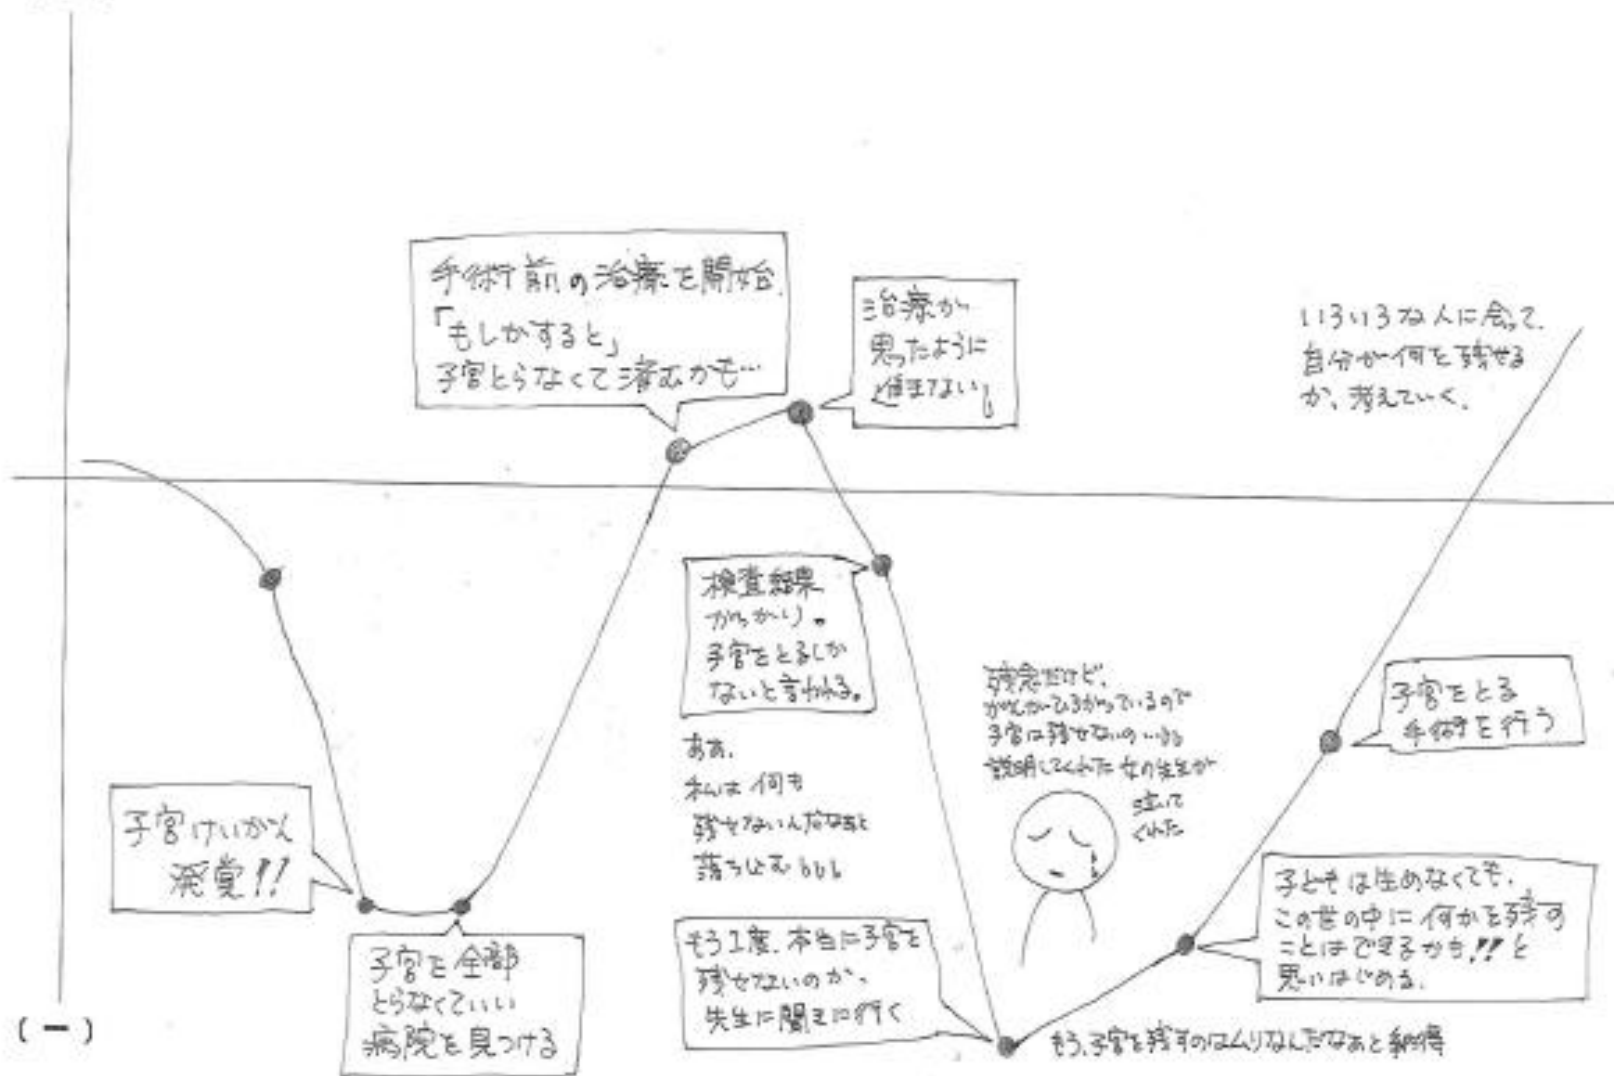 手術前の治療を開始
「もしかすると」
子宮とらなくて済むかも…
治療が
思ったように
進まない
いろいろな人に会って、
自分が何を残せる
か、考えていく。
検査結果
がっかり。
子宮をとるしか
ないと言われる。
ああ、
私は何も
残せないんだなぁと
落ち込む
残念だけど、
がんがひろがっているので
子宮は残せないの…
説明してくれた女の先生が
泣いて
くれた
子宮をとる
手術を行う
子宮けいがん
発覚!!
子宮を全部
とらなくていい
病院を見つける
もう1度、本当に子宮を
残せないのか、
先生に聞きに行く
子どもは生めなくても、
この世の中に何かを残す
ことはできるかも!!と
思いはじめる。
もう、子宮を残すのはムリなんだなぁと納得
(ー)